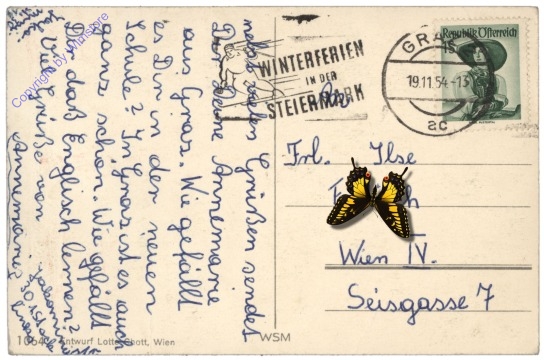 nebst vielen Grüßen sendet
Dir Deine Annemarie
aus Graz. Wie gefällt
es Dir in der neuen
Schule? In Graz ist es auch
ganz schön. Wie gefällt
Dir das Englisch lernen?
Viele Grüße von
Annemarie
WINTERFERIEN
IN DER
STEIERMARK
GRAZ
19.11.54-13
2c
Republik Österreich
1S
An
Frl. Ilse
Wien IV.
Seisgasse 7
1064 Entwurf Lotte Chott, Wien
WSM
Copyright by